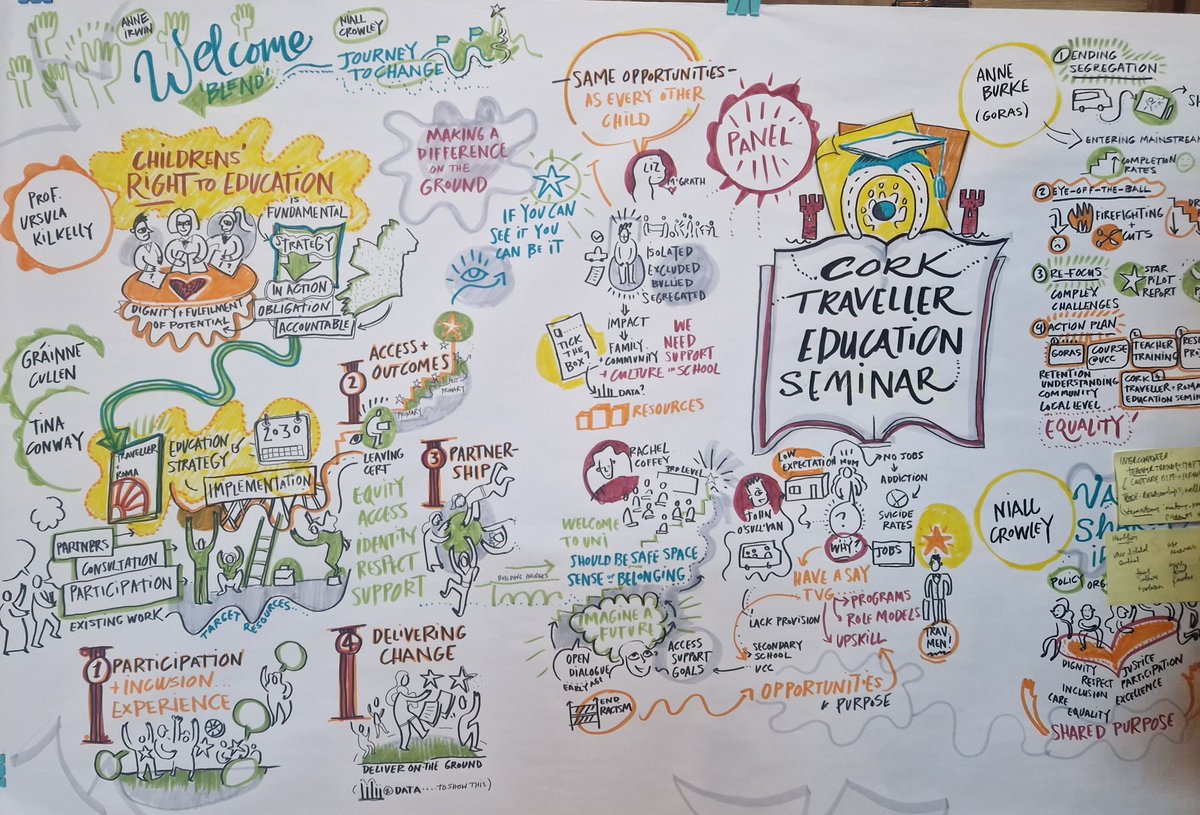 ANNE
IRWIN
Welcome
'BLEND'
NIALL
CROWLEY
JOURNEY
TO CHANGE
PROF.
URSULA
KILKELLY
CHILDRENS'
RIGHT TO EDUCATION
IS
FUNDAMENTAL
STRATEGY
IN ACTION
OBLIGATION
ACCOUNTABLE
DIGNITY + FULFILMENT
OF POTENTIAL
MAKING A
DIFFERENCE
ON THE
GROUND
IF YOU CAN
SEE IT YOU
CAN BE IT
GRÁINNE
CULLEN
TINA
CONWAY
TRAVELLER
+
ROMA
EDUCATION
STRATEGY
2030
IMPLEMENTATION
PARTNERS
CONSULTATION
PARTICIPATION
EXISTING WORK
TARGET RESOURCES
1
PARTICIPATION
+ INCLUSION...
EXPERIENCE
2
ACCESS +
OUTCOMES
PRIMARY
POST
PRIMARY
LEAVING
CERT
EQUITY
ACCESS
IDENTITY
RESPECT
SUPPORT
3
PARTNER-
SHIP
BUILDING BRIDGES
4
DELIVERING
CHANGE
DELIVER ON THE GROUND
DATA .... TO SHOW THIS)
SAME OPPORTUNITIES
AS EVERY OTHER
CHILD
LIZ
McGRATH
ISOLATED
EXCLUDED
BULLIED
SEGREGATED
IMPACT
FAMILY
+ COMMUNITY
+ CULTURE IN SCHOOL
WE
NEED
SUPPORT
TICK
THE
BOX?
DATA?
RESOURCES
PANEL
CORK
TRAVELLER
EDUCATION
SEMINAR
RACHEL
COFFEY
3RD LEVEL
WELCOME
TO UNI
SHOULD BE SAFE SPACE
SENSE OF BELONGING
IMAGINE A
FUTURE
OPEN
DIALOGUE
EARLY AGE
ACCESS
SUPPORT
GOALS
END
RACISM
JOHN
O'SULLVAN
LOW
EXPECTATION
HUM
NO JOBS
ADDICTION
SUICIDE
RATES
?
WHY?
JOBS
HAVE A SAY
TVG
PROGRAMS
ROLE MODELS
UPSKILL
LACK PROVISION
SECONDARY
SCHOOL
UCC
OPPORTUNITIES
& PURPOSE
TRAV.
MEN!
ANNE
BURKE
(GORAS)
1 ENDING
SEGREGATION
ENTERING MAINSTREAM
COMPLETION
RATES
2 EYE-OFF-THE-BALL
FIREFIGHTING
+
CUTS
3 RE-FOCUS
COMPLEX
CHALLENGES
STAR
PILOT
REPORT
4 ACTION PLAN
GORAS
COURSE
@UCC
TEACHER
TRAINING
RETENTION
UNDERSTANDING
COMMUNITY
LOCAL LEVEL
CORK
TRAVELLER + ROMA
EDUCATION
EQUALITY
NIALL
CROWLEY
POLICY
DIGNITY
RESPECT
INCLUSION
CARE
EQUALITY
JUSTICE
PARTICIPATION
EXCELLENCE
SHARED PURPOSE